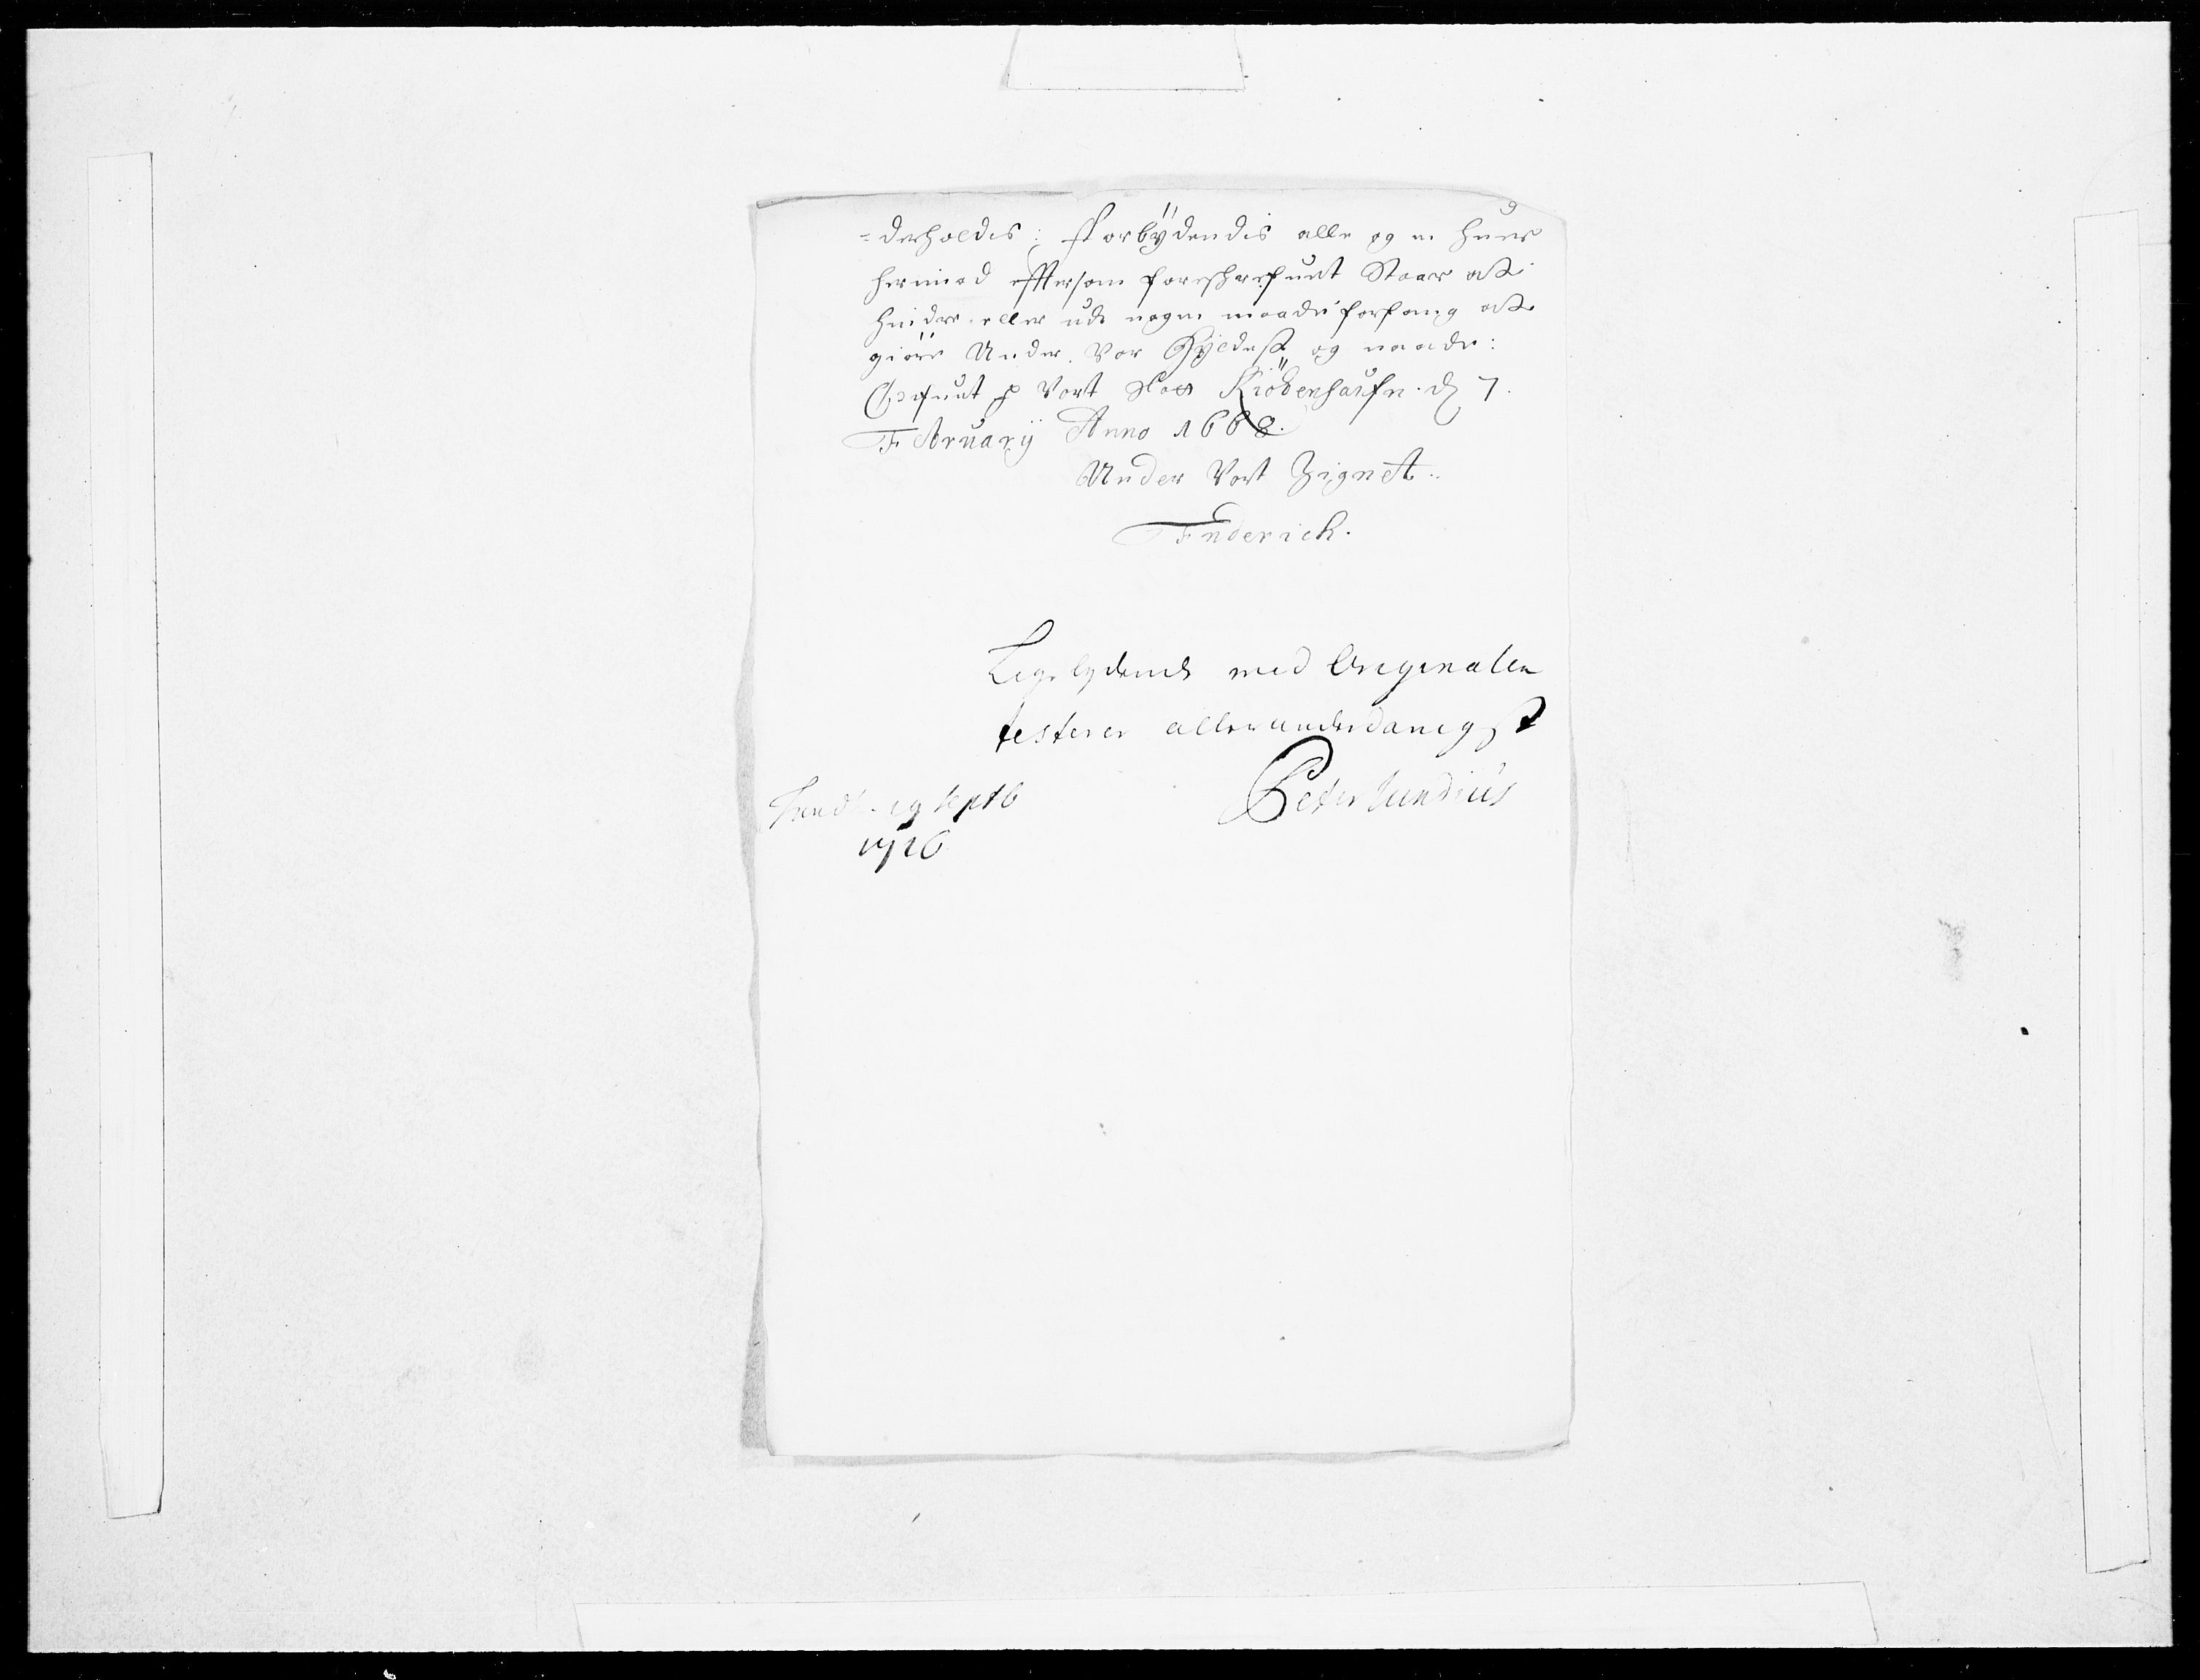 =derholdis: forbÿdendis alle og en huer
hermed effterson foreskrefuut Staar att
hindre eller udi nogen maade forfang att
giöre Under Vor Hÿldest og naade:
Gifuut p Vort Slott Kiöbenhaufn. d 7.
Februarÿ Anno 1668.
Under Vort Zignet.
Friderich.
Ligelydende med Originalen
testerer allerunderdanigst
Peter Lundius
Trondh. 19 Septb
1726